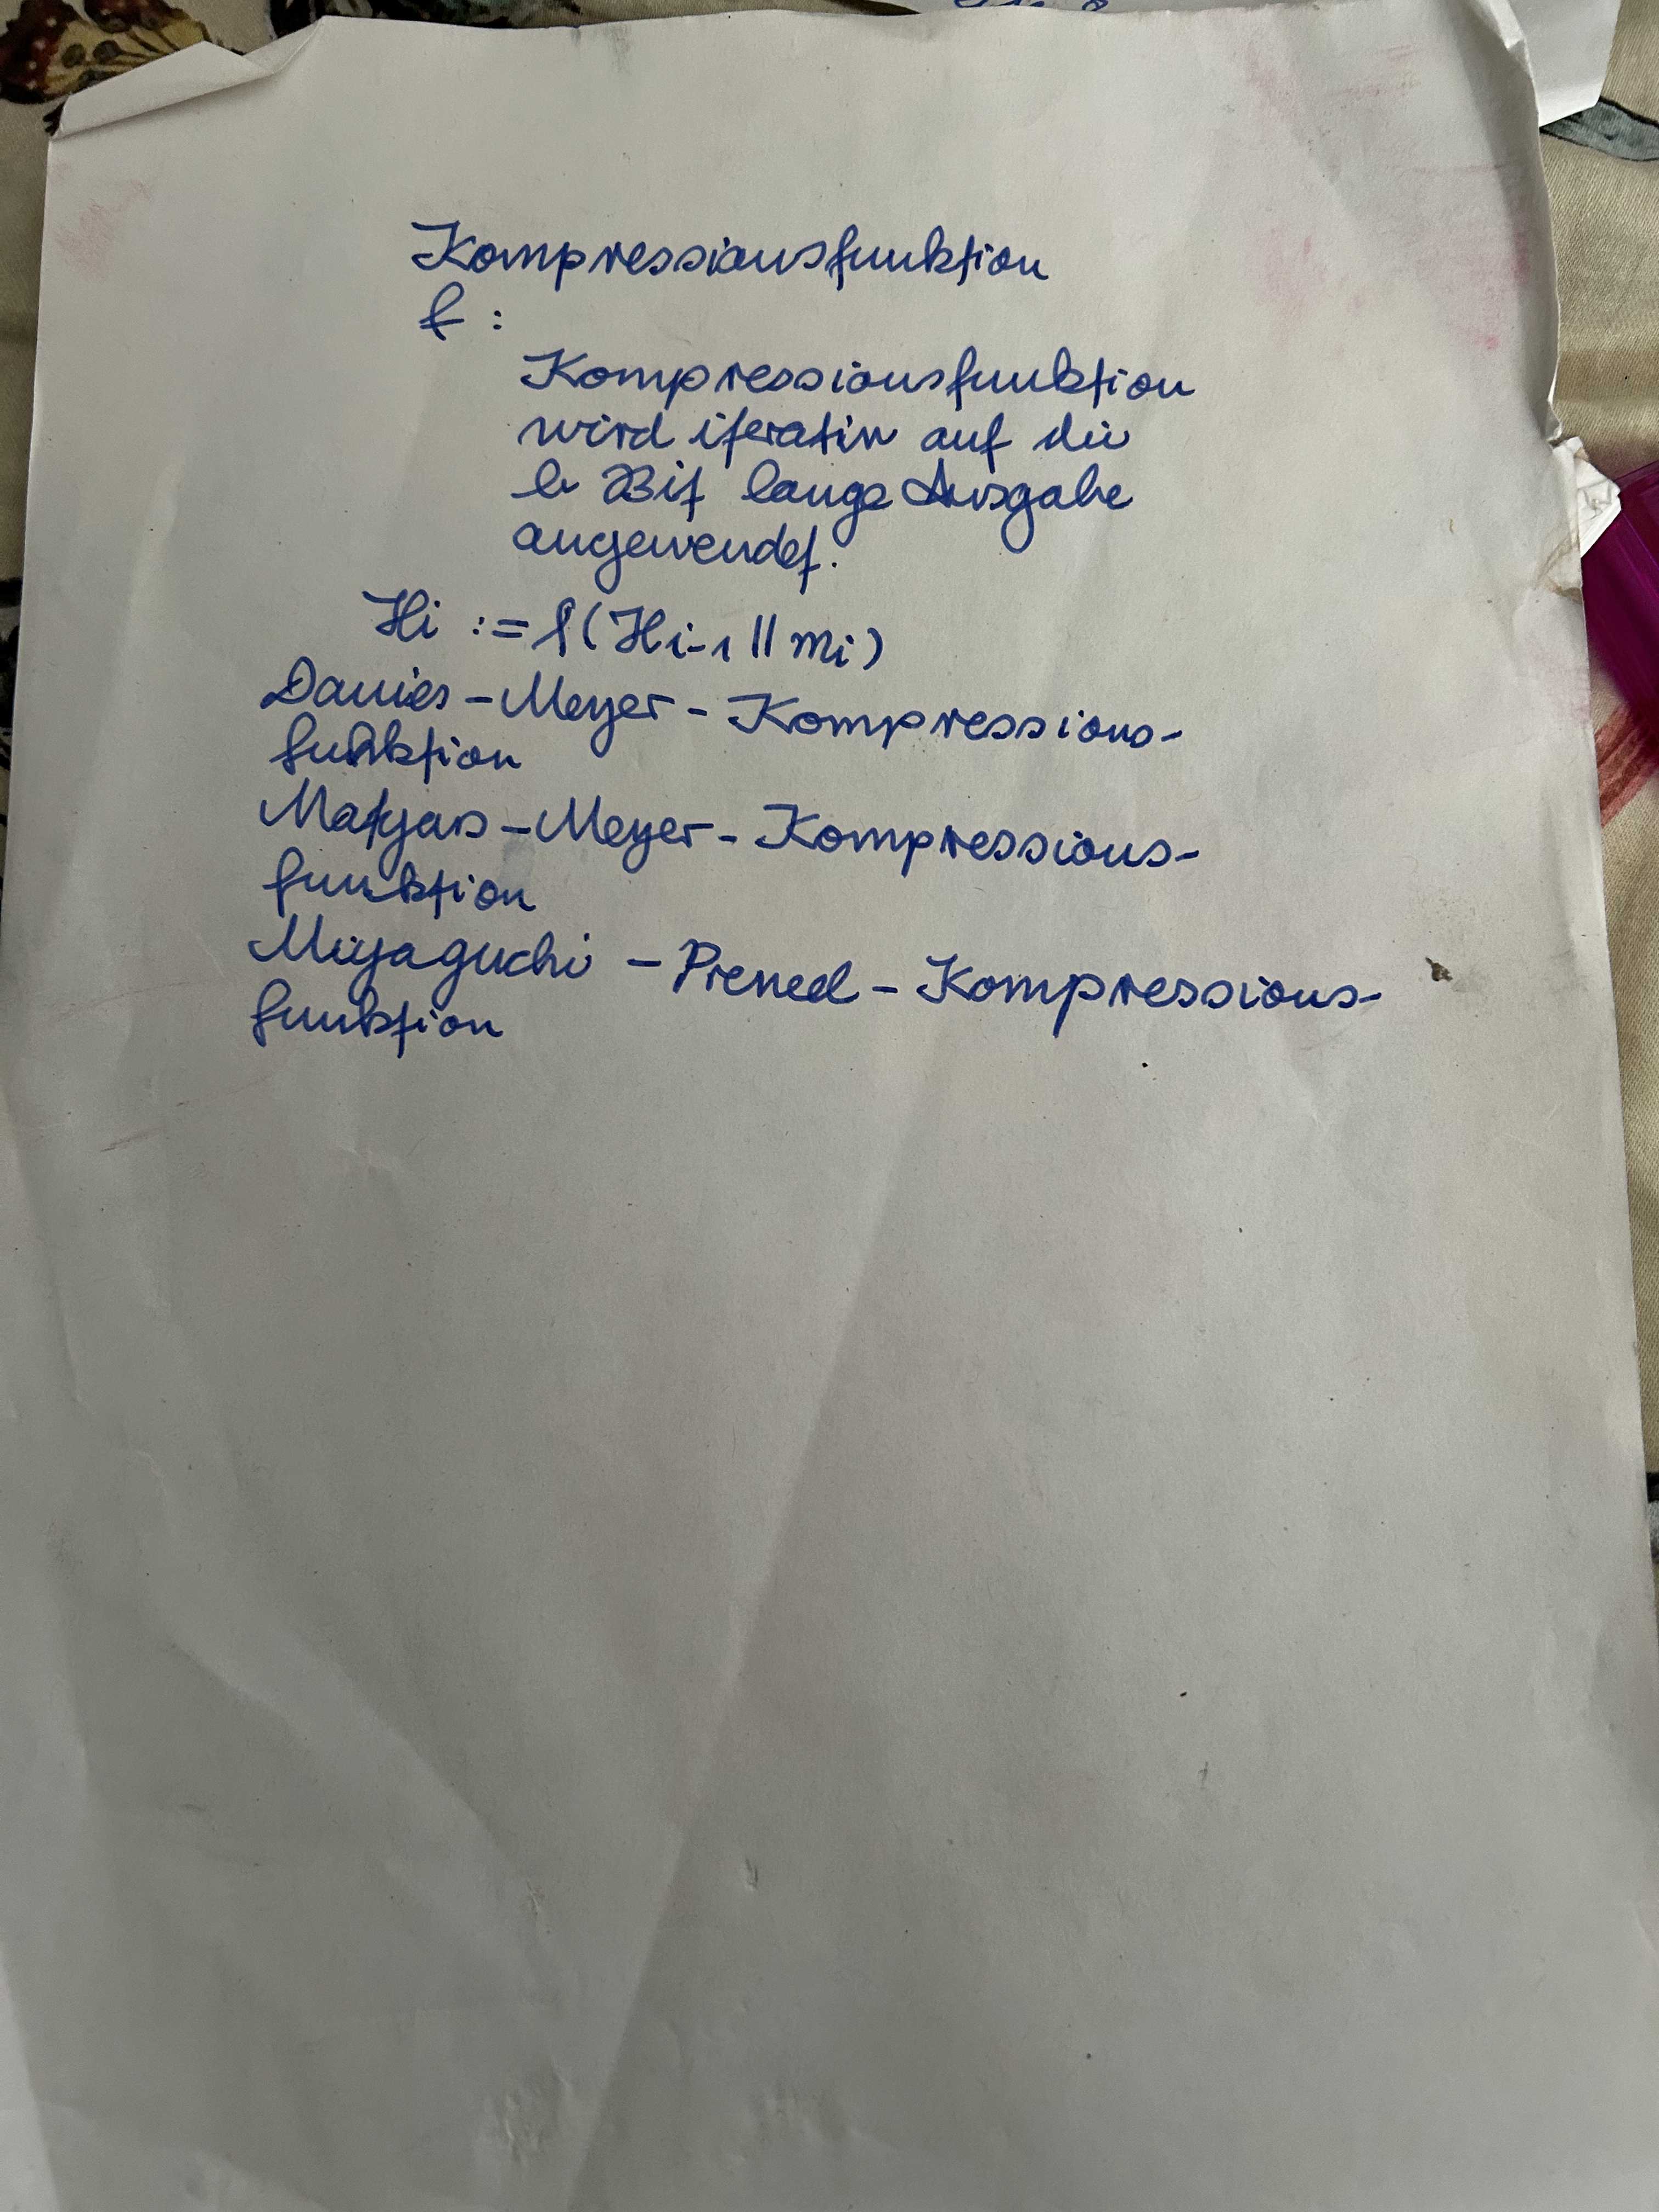 Kompressionsfunktion
f :
Kompressionsfunktion
wird iterativ auf die
b Bit lange Ausgabe
angewendet.
Hi := f(Hi-1 || mi)
Davies-Meyer-Kompressions-
funktion
Matyas-Meyer-Kompressions-
funktion
Miyaguchi-Preneel-Kompressions-
funktion